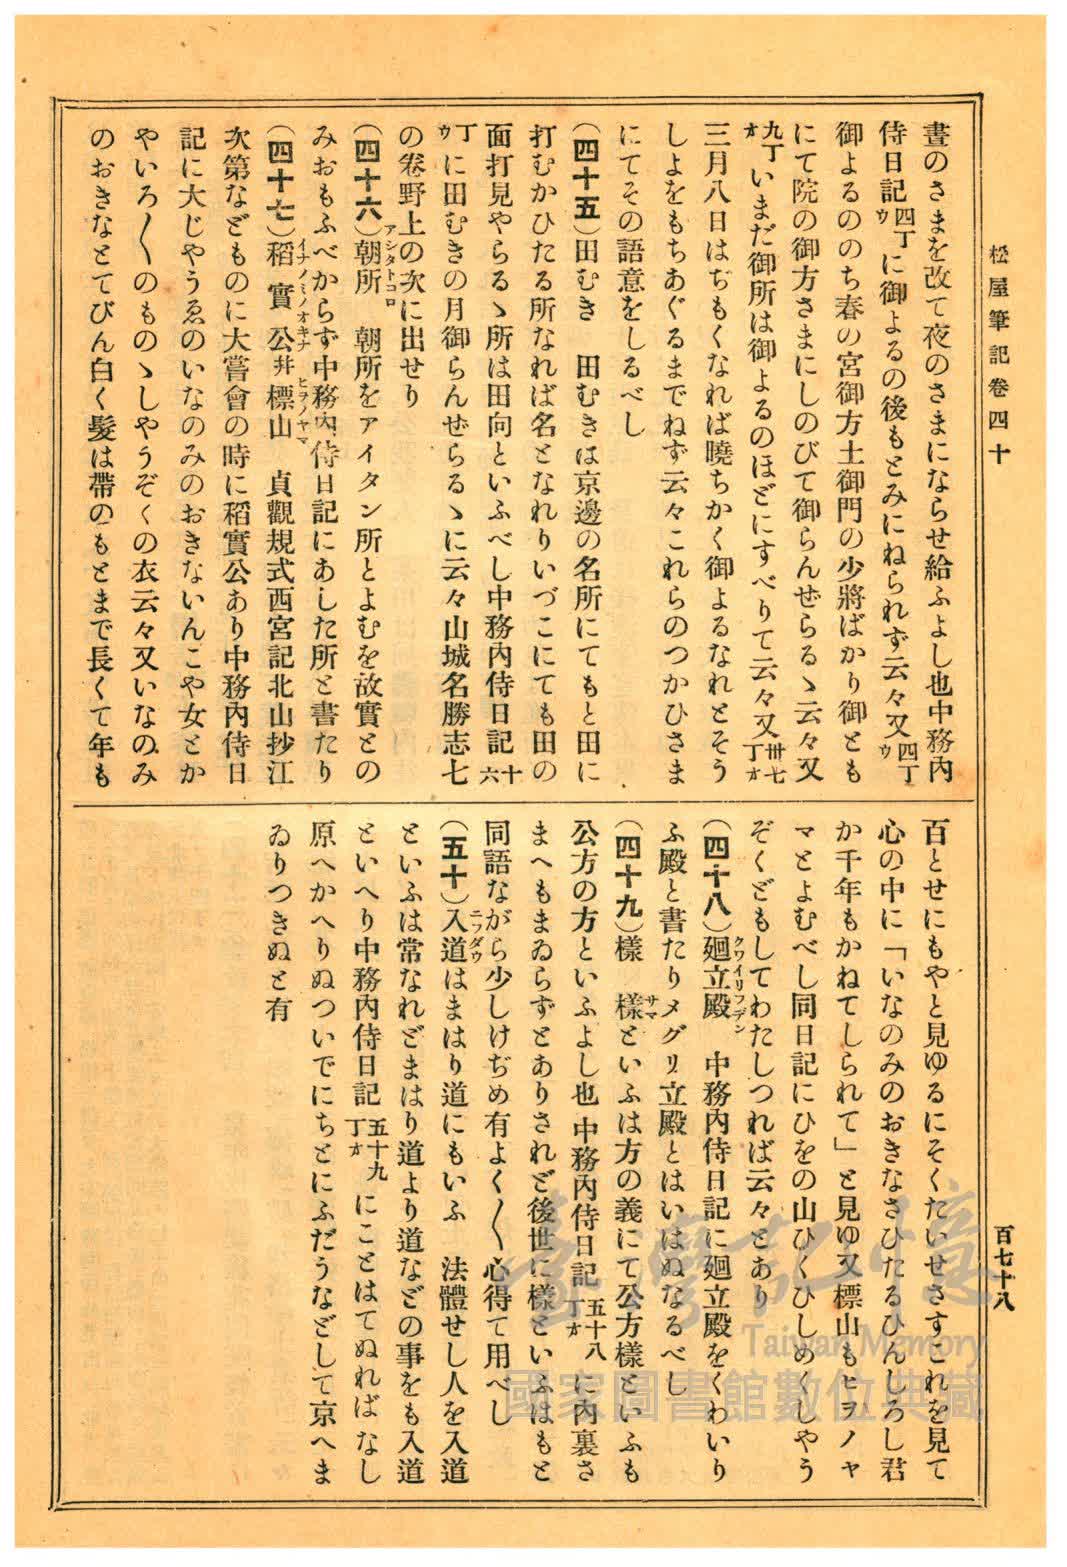 松屋筆記卷四十
百七十八
晝のさまを改て夜のさまにならせ給ふよし也中務內
侍日記四丁ウに御よるの後もとみにねられず云々又四丁ウ
御よるののち春の宮御方土御門の少將ばかり御とも
にて院の御方さまにしのびて御らんぜらるゝ云々又
九丁オいまだ御所は御よるのほどにすべりて云々又卅七丁オ
三月八日はぢもくなれば曉ちかく御よるなれとそう
しよをもちあぐるまでねず云々これらのつかひさま
にてその語意をしるべし
(四十五)田むき　田むきは京邊の名所にてもと田に
打むかひたる所なれば名となれりいづこにても田の
面打見やらるゝ所は田向といふべし中務內侍日記十六
丁ウに田むきの月御らんぜらるゝに云々山城名勝志七
の卷野上の次に出せり
(四十六)朝所アシタトコロ　朝所をアイタン所とよむを故實との
みおもふべからず中務內侍日記にあした所と書たり
(四十七)稻實公イナノミノオキナ幷標山ヒヲノヤマ　貞觀規式西宮記北山抄江
次第などものに大嘗會の時に稻實公あり中務內侍日
記に大じやうゑのいなのみのおきないんこや女とか
やいろ〱のものゝしやうぞくの衣云々又いなのみ
のおきなとてびん白く髮は帶のもとまで長くて年も
百とせにもやと見ゆるにそくたいせさすこれを見て
心の中に「いなのみのおきなさひたるひんしろし君
か千年もかねてしられて」と見ゆ又標山もヒヲノヤ
マとよむべし同日記にひをの山ひくひしめくしやう
ぞくどもしてわたしつれば云々とあり
(四十八)廻立殿クワイリフデン　中務內侍日記に廻立殿をくわいり
ふ殿と書たりメグリ立殿とはいはぬなるべし
(四十九)樣　樣サマといふは方の義にて公方樣といふも
公方の方といふよし也中務內侍日記五十八丁オに內裏さ
まへもまゐらずとありされど後世に樣といふはもと
同語ながら少しけぢめ有よく〱心得て用べし
(五十)入道ニフダウはまはり道にもいふ　法體せし人を入道
といふは常なれどまはり道より道などの事をも入道
といへり中務內侍日記五十九丁オにことはてぬればなし
原へかへりぬついでにちとにふだうなどして京へま
ゐりつきぬと有
臺灣記憶
Taiwan Memory
國家圖書館數位典藏